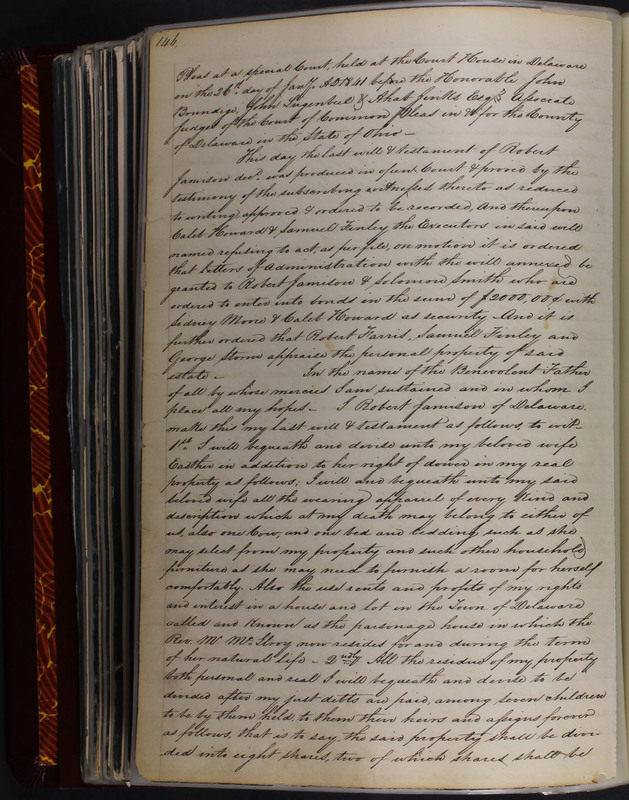 146.
Pleas at a special Court, held at the Court House in Delaware
on the 26th day of Jany. AD 1841 before the Honorable John
Boundige, John Lugenbeel & Ahab Jinks Esqrs Associate
judges of the Court of Common Pleas in & for the County
of Delaware in the State of Ohio —
This day the last will & testament of Robert
Jamison decd. was produced in open Court & proved by the
testimony of the subscribing witnesses thereto as reduced
to writing, approved & ordered to be recorded, And thereupon
Caleb Howard & Samuel Finley the Executors in said will
named refusing to act, as per file, on motion it is ordered
that letters of Administration with the will annexed be
granted to Robert Jamison & Solomon Smith who are
ordered to enter into bonds in the sum of $2000,00 with
Sidney Moore & Caleb Howard as security — And it is
further ordered that Robert Farris, Samuel Finley and
George Storm appraise the personal property of said
estate — In the name of the Benevolent Father
of all by whose mercies I am sustained and in whom I
place all my hopes — I Robert Jamison of Delaware
make this my last will & testament as follows, to wit—
1st I will bequeath and devise unto my beloved wife
Easther in addition to her right of dower in my real
property as follows; I will and bequeath unto my said
beloved wife all the wearing apparel of every Kind and
description which at my death may belong to either of
us, also one Cow, and one bed and bedding such as she
may select from my property and such other household
furniture as she may need to furnish a room for herself
comfortably. Also the use rents and profits of my rights
and interest in a house and lot in the Town of Delaware
called and Known as the parsonage house in which the
Rev. Mr. McElroy now resides for and during the term
of her natural life — 2ndly All the residue of my property
both personal and real I will bequeath and devise to be
divided after my just debts are paid, among seven children
to be by them held to them their heirs and assigns forever
as follows, that is to say, the said property shall be divi-
ded into eight shares, two of which shares shall be